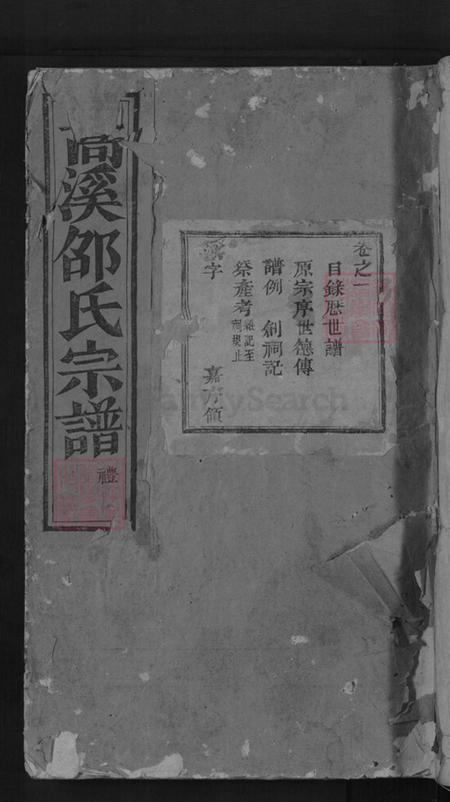 卷之一
目錄歷世譜
原宗序世德傳
譜例 創祠記
祭產考雜記至祠規止
字 嘉 領
溪邵氏宗譜
禮
FamilySearch